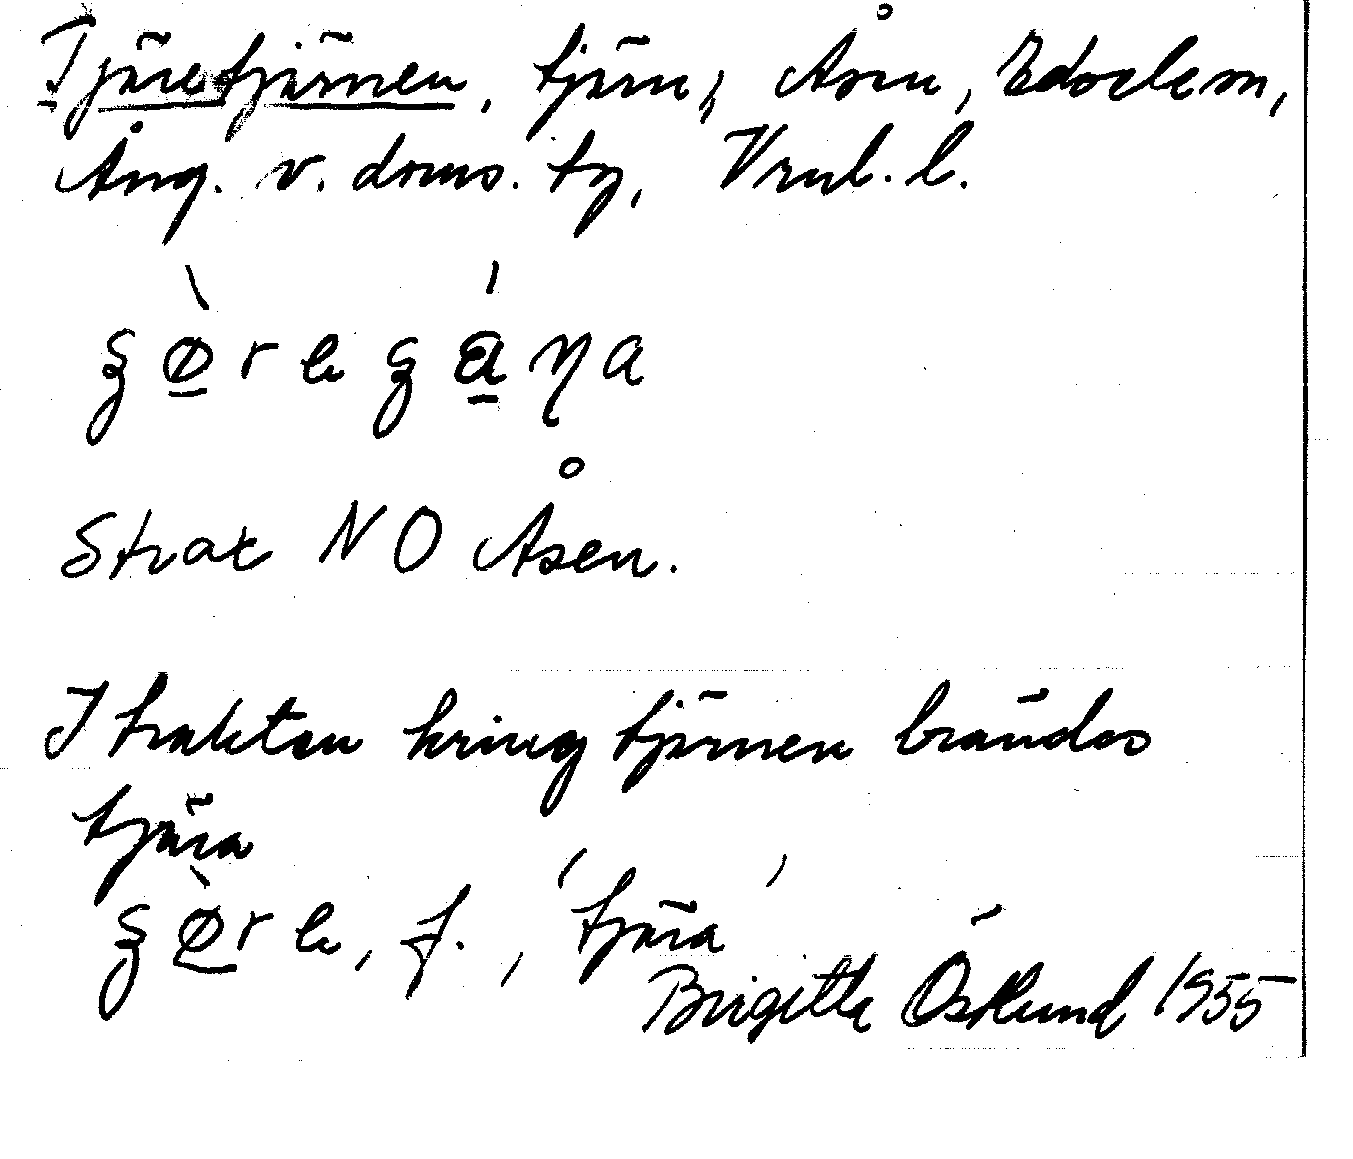 Tjäretjärnen, tjärn, Åsen, Edsleskog,
Äng. v. doms. tg, Vrml. l.
Strax NO Åsen.
I trakten kring tjärnen brändes
tjära
f., 'tjära'
Birgitta Östlund 1955